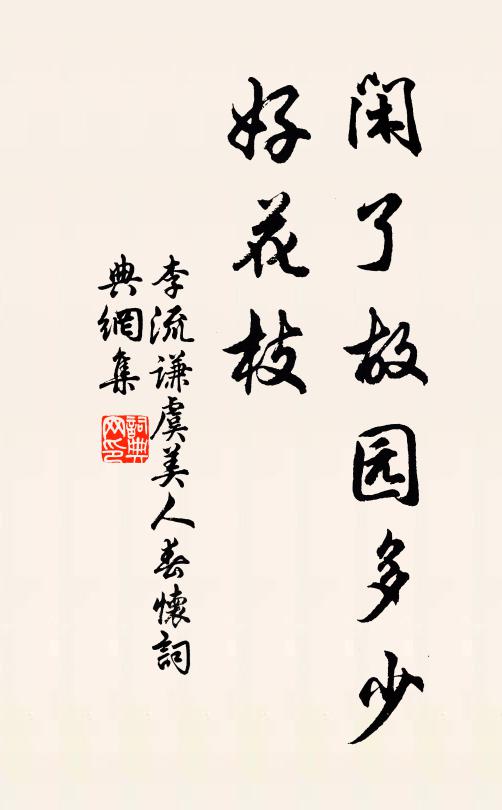 闲了故园多少
好花枝
李流谦虞美人春懷詞
典網集
詞典网印